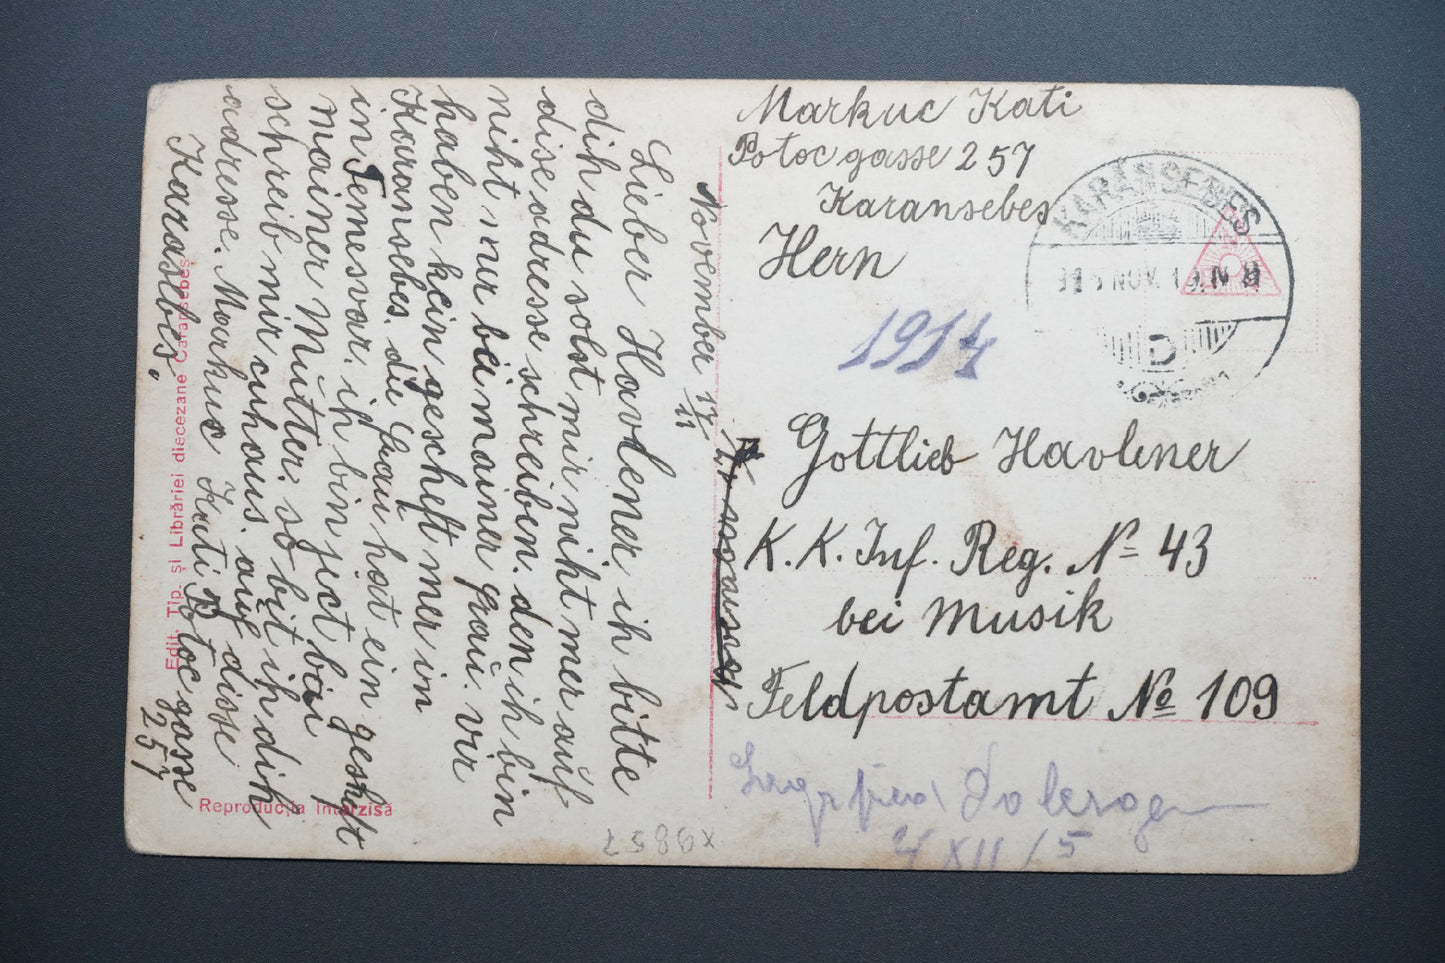 Markuc Kati
Potoc gasse 257
Karansebes
Hern
1914
Gottlieb Havlener
K. K. Inf. Reg. № 43
bei Musik
Feldpostamt № 109
4 XII / 5
KARÁNSEBES
NOV.
D
November 17/11
Lieber Havlener ih bitte
dih du solst mir niht mer auf
dise adresse schreiben. den ih bin
niht mur bei mainer gaŭ. vir
haben kein gescheft mer in
Karansebes. die gaŭ hat ein gescheft
in Temesvar. ih bin ject bai
mainer Mutter. so bit ih dih
schreib mir cuhaus. auf disse
adresse. Markuc Kati Potoc gasse
257
Karasebis.
Edit. Tip. și Librăriei diecezane Caransebeș.
Reproducția interzisă
x9857